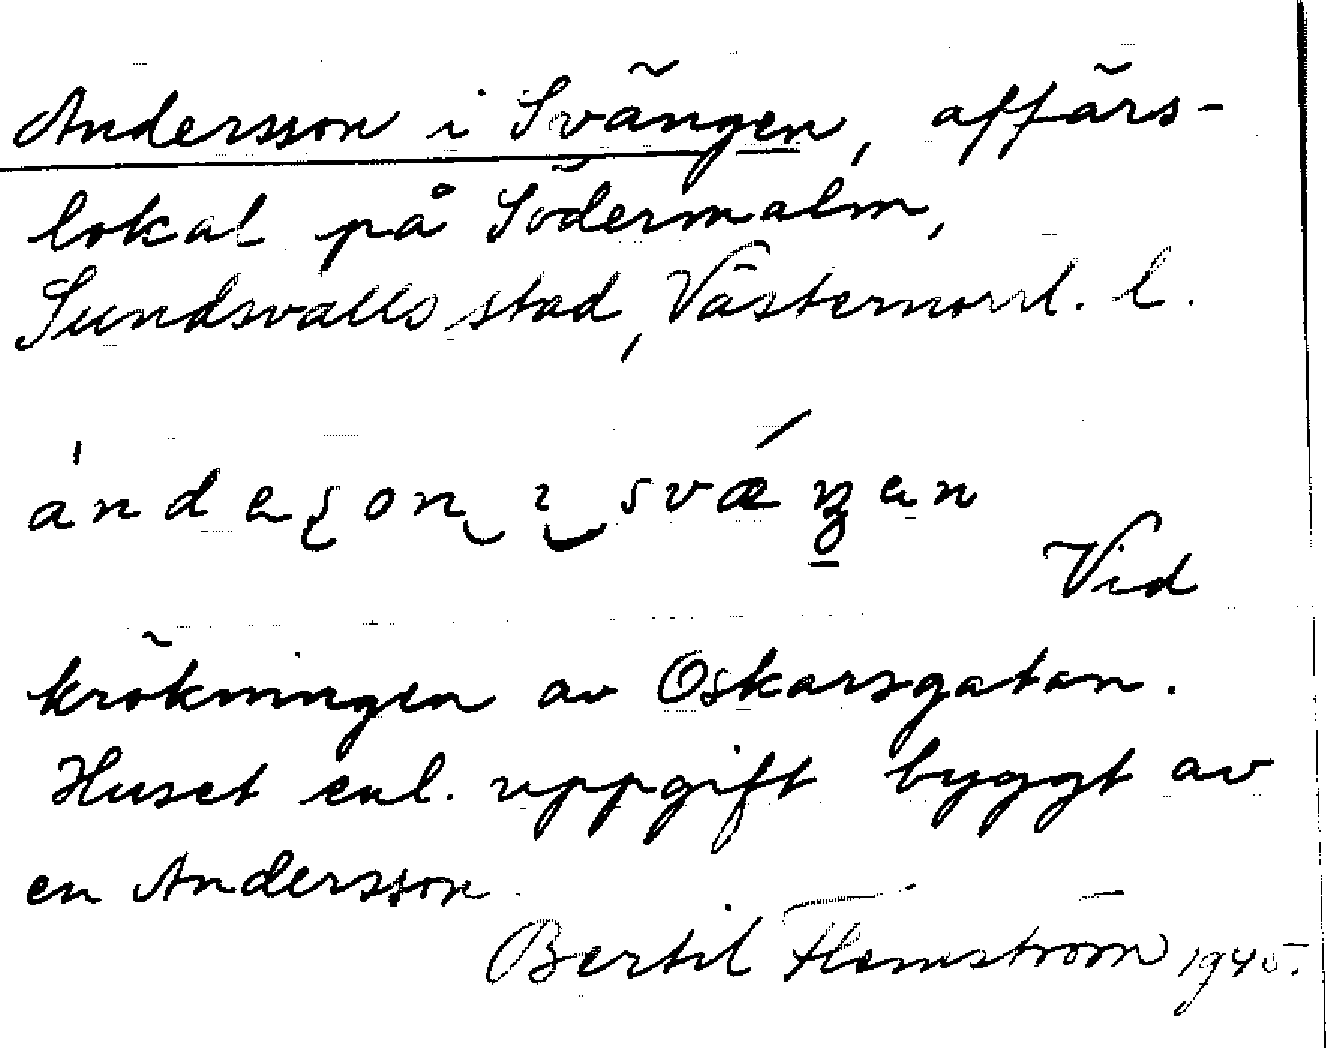 Andersson i Svängen, affärs-
lokal på Södermalm,
Sundsvalls stad, Västernorrl. l.
Vid
krökningen av Oskarsgatan.
Huset enl. uppgift byggt av
en Andersson.
Bertil Flemström 1945.